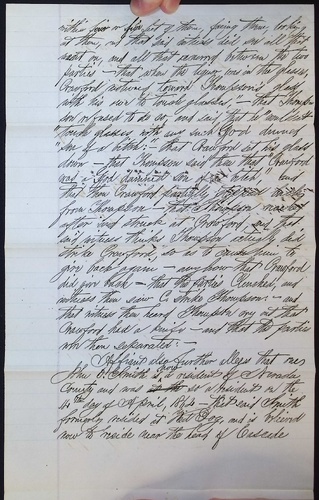 within four or five feet of them, facing them, looking
at them, and that said witness did see all that
went on, and all that occurred between the two
parties – that when the liquor was in the glasses,
Crawford motioned toward Thompson's glass
with his own to touch glasses, – that Thomp-
son refused to do so, and said that he wouldn't
"touch glasses with any such God damned
son of a bitch: – that Crawford set his glass
down – that Thompson said then that "Crawford
was a God damned son of a bitch" and
that then Crawford
from Thompson – that Thompson
after and struck at Crawford, and that
said witness thinks Thompson actually did
strike Crawford, so as to cause him to
give back again – any how that Crawford
did give back – that the parties clenched, and
witness then saw C. strike Thompson: – and
that witness then heard Thompson cry out that
Crawford had a knife – and that the parties
were then separated: –
Affiant also further alleges that one
John C. Smith is a resident of Nevada
County and was so a resident on the
4th day of April, – that said Smith
formerly resided at and is believed
now to reside near the head of Cascade